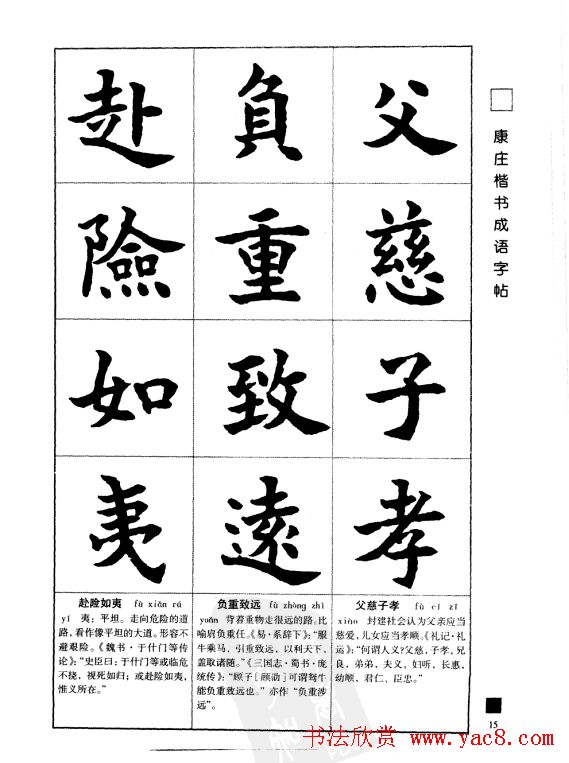 康庄楷书成语字帖
父慈子孝
負重致遠
赴險如夷
父慈子孝 fù cí zǐ
xiào 封建社会认为父亲应当
慈爱,儿女应当孝顺。《礼记·礼
运》:“何谓人义?父慈,子孝,兄
良,弟弟,夫义,妇听,长惠,
幼顺,君仁,臣忠。”
负重致远 fù zhòng zhì
yuǎn 背着重物走很远的路。比
喻肩负重任。《易·系辞下》:“服
牛乘马,引重致远,以利天下,
盖取诸随。”《三国志·蜀书·庞
统传》:“顾子[顾劭]可谓驽牛
能负重致远也。”亦作“负重涉
远”。
赴险如夷 fù xiǎn rú
yí 夷:平坦。走向危险的道
路,看作像平坦的大道。形容不
避艰险。《魏书·于什门等传
论》:“史臣曰:于什门等或临危
不挠,视死如归;或赴险如夷,
惟义所在。”
15
书法欣赏 www.yac8.com